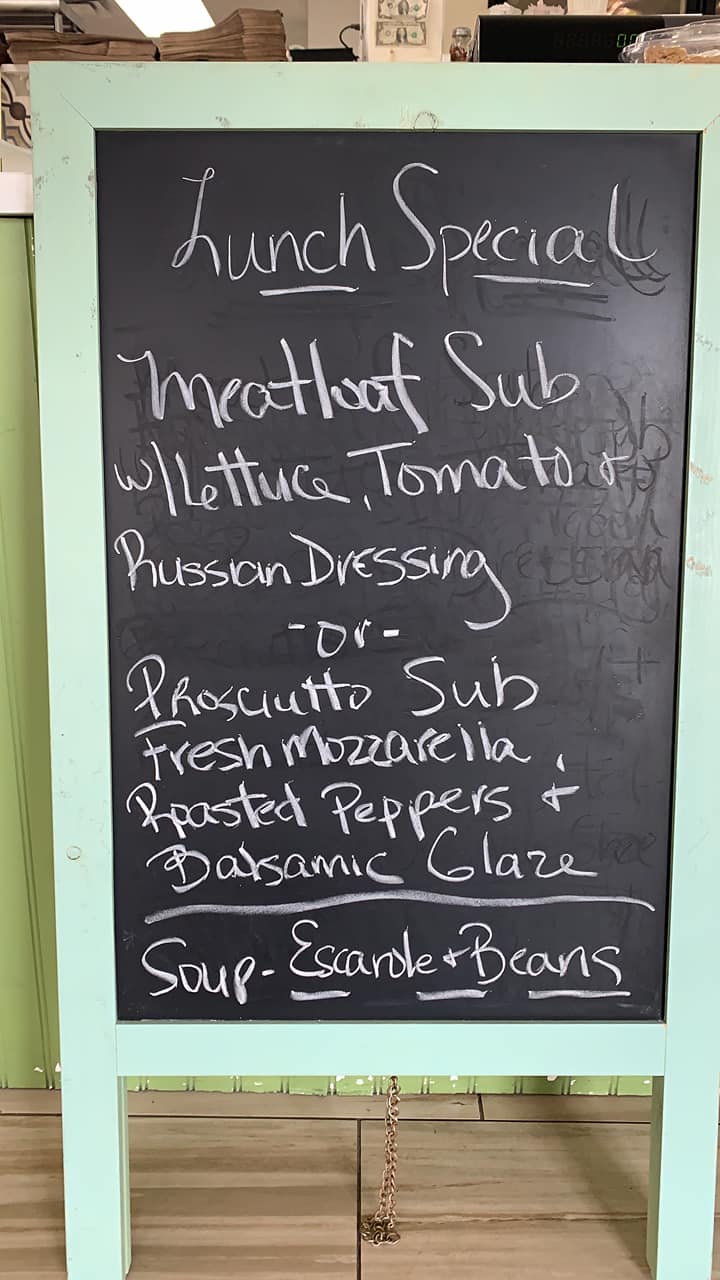 Lunch Special
Meatloaf Sub
w/Lettuce, Tomato +
Russian Dressing
-or-
Prosciutto Sub
Fresh Mozzarella,
Roasted Peppers +
Balsamic Glaze
Soup- Escarole + Beans